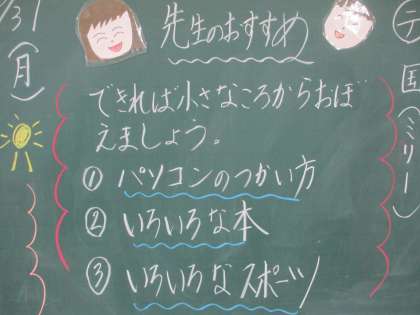 /31
(月)
先生のおすすめ
できれば小さなころからおぼ
えましょう。
① パソコンのつかい方
② いろいろな本
③ いろいろなスポーツ
国(ミリー)